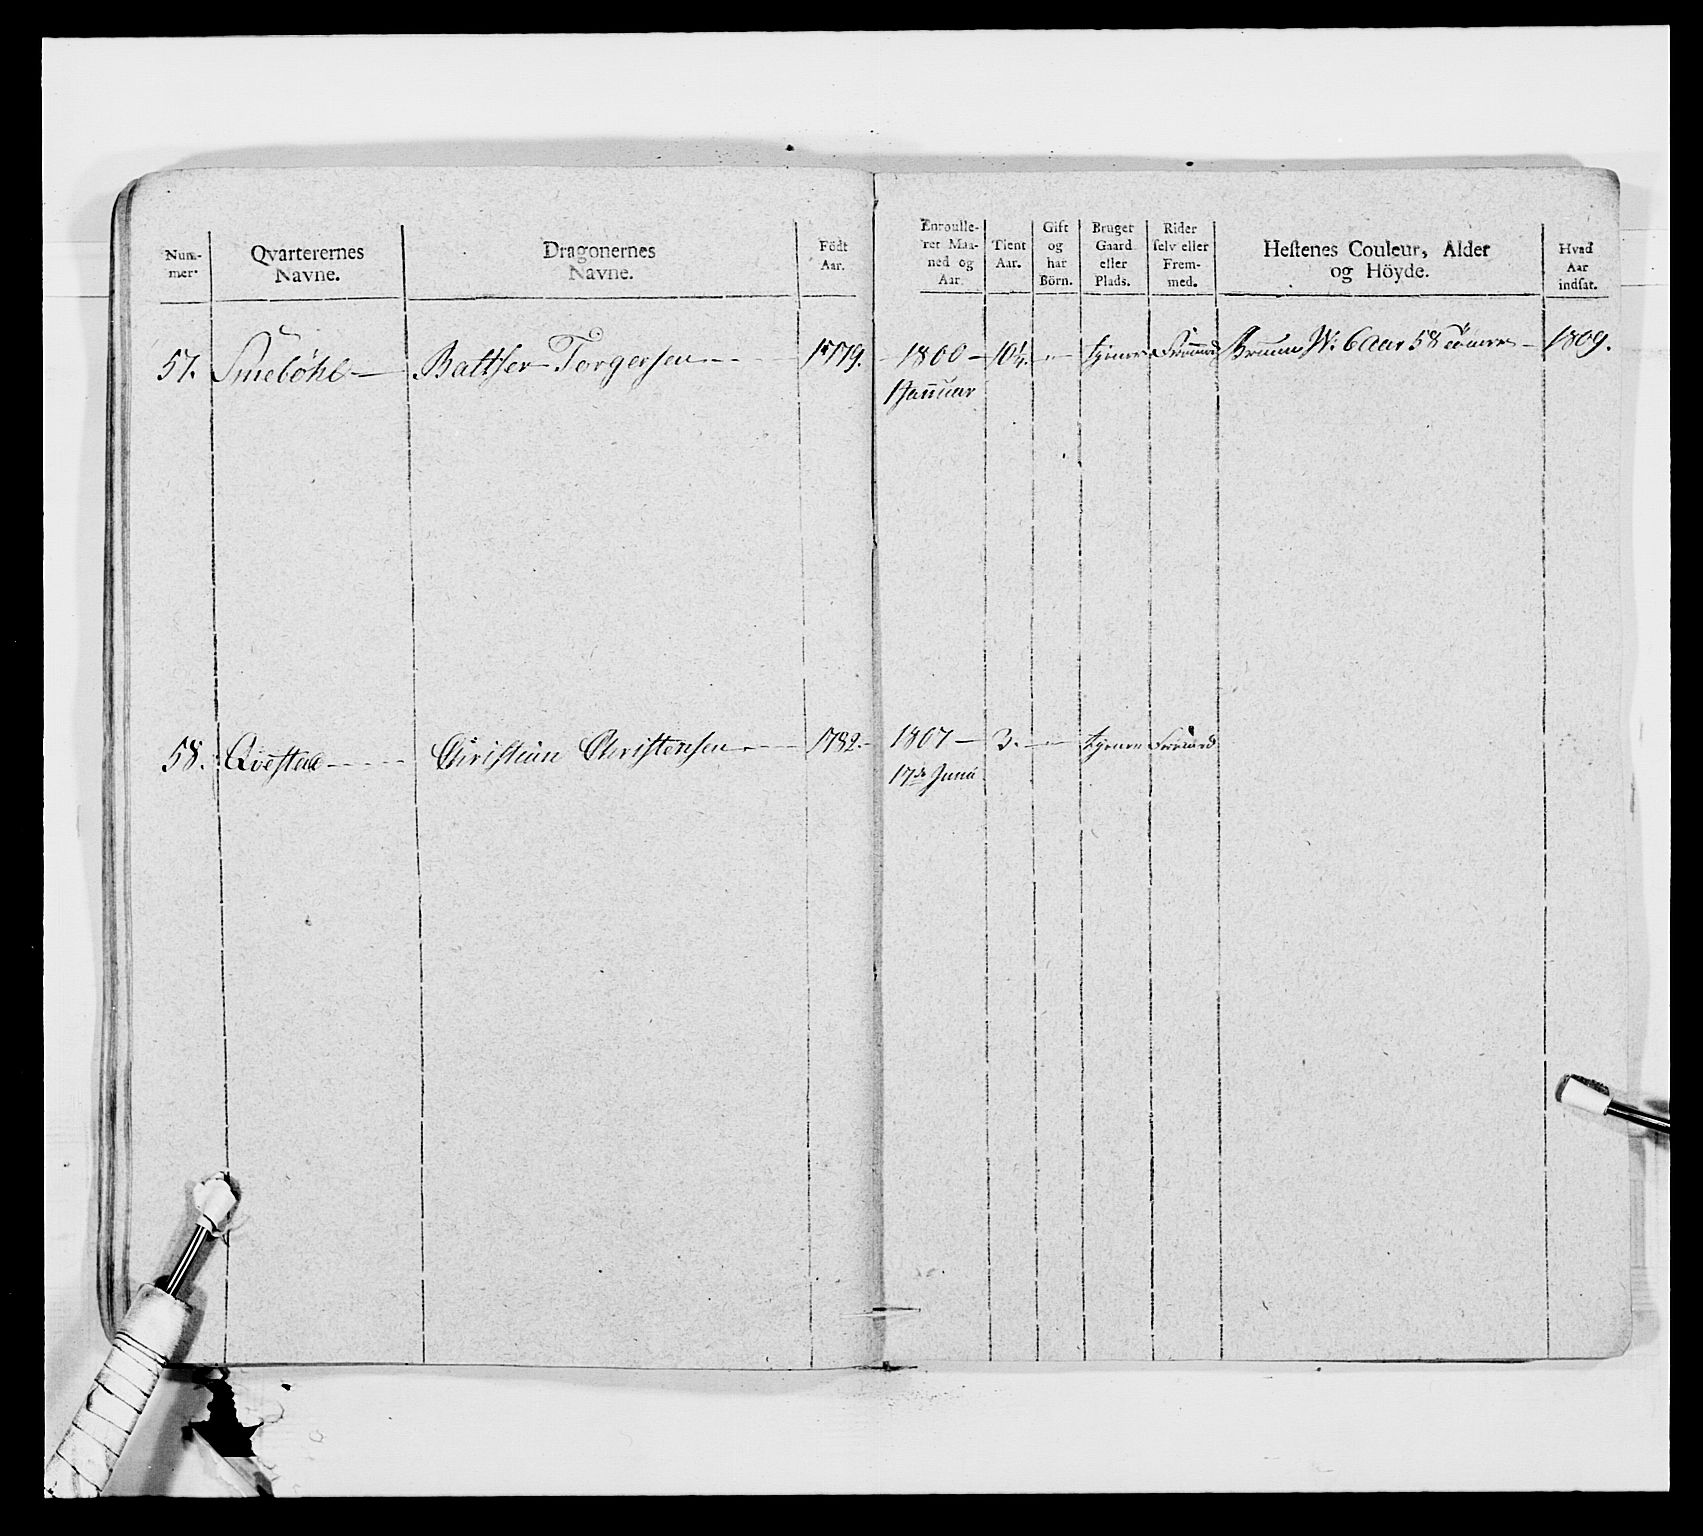 Num-
mer.
Qvarterernes
Navne.
Dragonernes
Navne.
Födt
Aar.
Enroulle-
ret Maa-
ned og
Aar.
Tient
Aar.
Gift
og
har
Börn.
Bruger
Gaard
eller
Plads.
Rider
selv eller
Frem-
med.
Hestenes Couleur, Alder
og Höyde.
Hvad
Aar
indsat.
57. Smeböhl Baltser Torgersen 1779. 1800 10¼. " tjener Fremmed Bruun W: 6 Aar 58 1809.
1 Januar
58. Qvestad Christian Christensen 1782. 1807 3. " tjener Fremmed
17de Junii